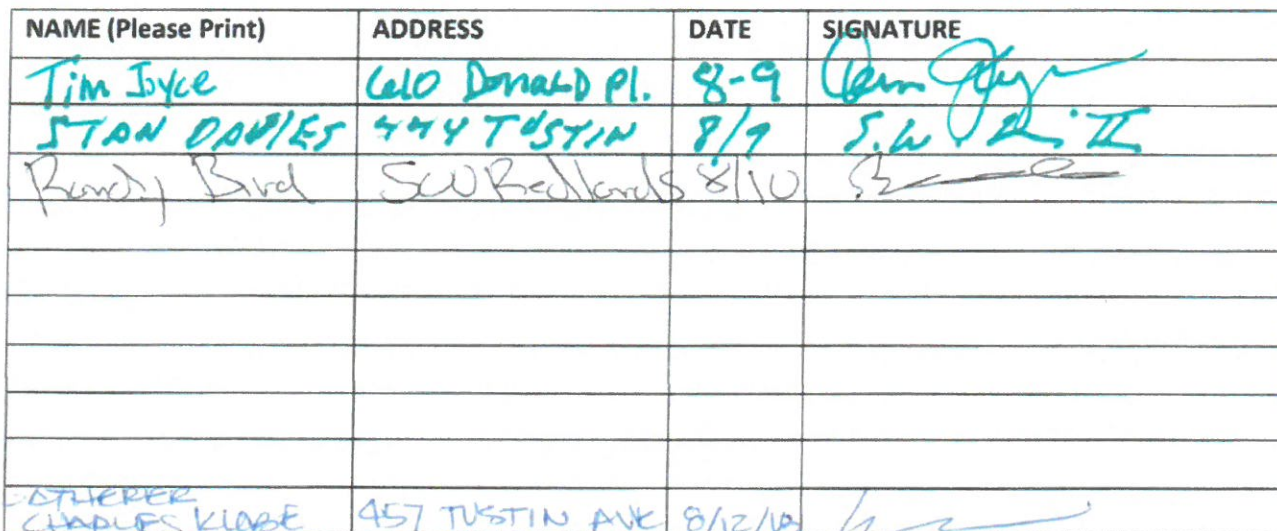 NAME (Please Print) ADDRESS DATE SIGNATURE
Tim Joyce 610 Donald Pl. 8-9
STAN DAVIES 444 TUSTIN 8/9
Randy Bird Redlands 8/10
GATHERER
CHARLES KLOBE 457 TUSTIN AVE 8/12/18